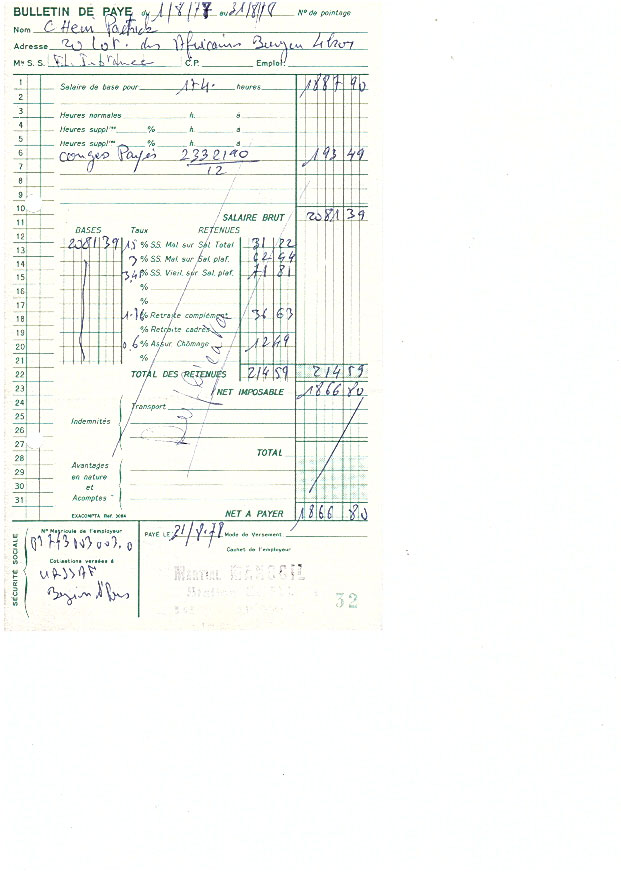 BULLETIN DE PAYE du 1/8/78 au 31/8/78 N° de pointage
Nom C Hein Patrick
Adresse 20 Lot. des Africains
Mle S. S. C.P. Emploi:
1 Salaire de base pour 174 heures 1887 90
2
3 Heures normales h. à
4 Heures supplres % h. à
5 Heures supplres % h. à
6 congés Payés 2332190 193 49
7 12
8
9
10 SALAIRE BRUT 2081 39
11 BASES Taux RETENUES
12 2081 39 15 % SS. Mal. sur Sal. Total 31 22
13
14 3 % SS. Mal. sur Sal. plaf. 62 44
15 3,45 % SS. Vieil. sur Sal. plaf. 71 81
16 %
17 %
18 1.76 % Retraite complémt 36 63
19 % Retraite cadres
20 0,6 % Assur. Chômage 12 49
21 %
22 TOTAL DES RETENUES 214 59 214 59
23 NET IMPOSABLE 1866 80
24 Transport
25 Indemnités
26
27
28 TOTAL
29 Avantages
30 en nature et
31 Acomptes
EXACOMPTA Réf. 3084 NET A PAYER 1866 80
SÉCURITÉ SOCIALE
N° Matricule de l'employeur
PAYÉ LE 21/8.78 Mode de Versement
Cotisations versées à
Cachet de l'employeur
URSSAF
32